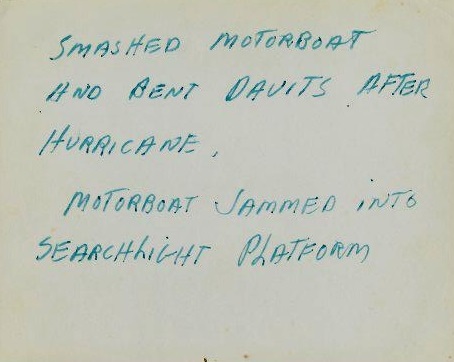 SMASHED MOTORBOAT
AND BENT DAVITS AFTER
HURRICANE,
MOTORBOAT JAMMED INTO
SEARCHLIGHT PLATFORM